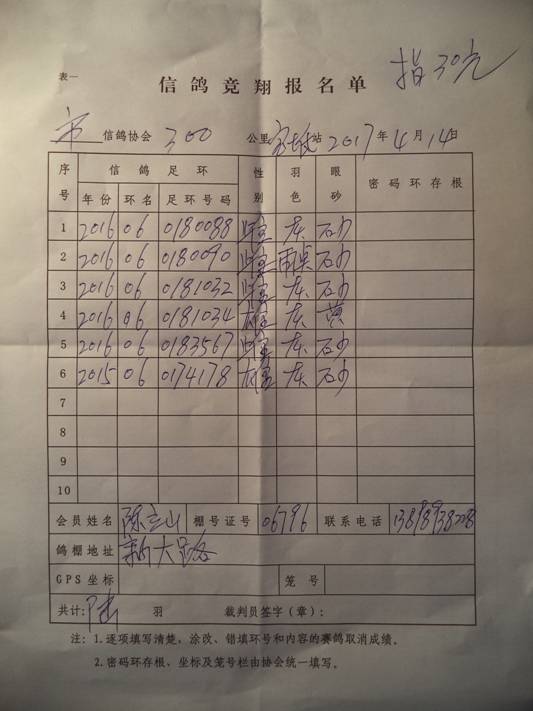 表一
信鸽竞翔报名单
指30元
市 信鸽协会 300 公里 站 2017年4月14日
序号 信鸽足环 性别 羽色 眼砂 密码环存根
年份 环名 足环号码
1 2016 06 0180088 雌 灰 砂
2 2016 06 0180090 雌 雨点 砂
3 2016 06 0181032 雌 灰 砂
4 2016 06 0181034 雄 灰 黄
5 2016 06 0183567 雌 灰 砂
6 2015 06 0174178 雄 灰 砂
7
8
9
10
会员姓名 陈立山 棚号证号 06796 联系电话
鸽棚地址 新大路
GPS坐标 笼号
共计: 陆 羽 裁判员签字(章):
注: 1.逐项填写清楚,涂改、错填环号和内容的赛鸽取消成绩。
2.密码环存根、坐标及笼号栏由协会统一填写。